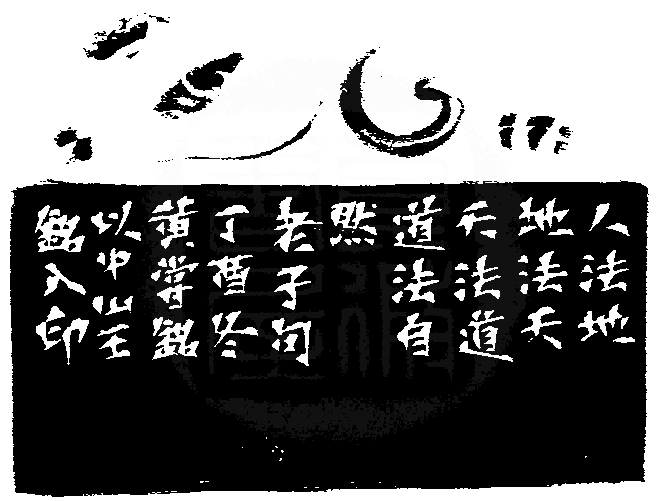 人法地
地法天
天法道
道法自
然
老子句
丁酉冬
黄掌銘
以中山王
銘入印